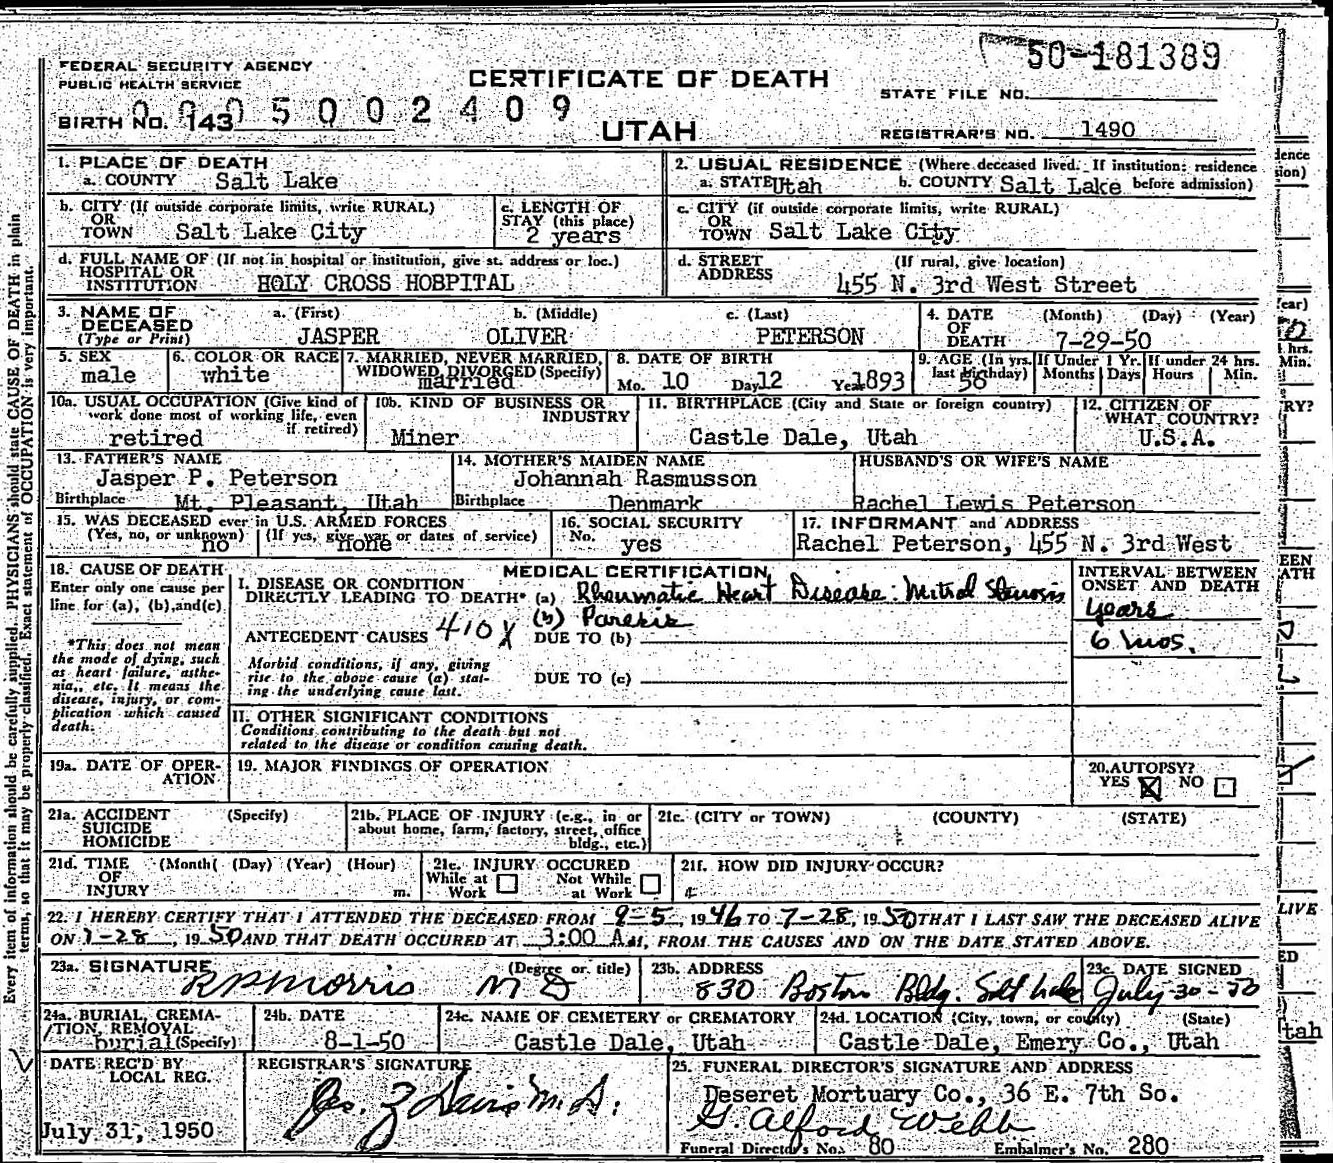 50-181389
FEDERAL SECURITY AGENCY
PUBLIC HEALTH SERVICE
CERTIFICATE OF DEATH
STATE FILE NO.
0005002409
BIRTH NO. 143
UTAH
REGISTRAR'S NO. 1490
1. PLACE OF DEATH
a. COUNTY Salt Lake
2. USUAL RESIDENCE (Where deceased lived. If institution: residence
a. STATE Utah b. COUNTY Salt Lake before admission)
b. CITY (If outside corporate limits, write RURAL)
OR
TOWN Salt Lake City
c. LENGTH OF
STAY (this place)
2 years
c. CITY (if outside corporate limits, write RURAL)
OR
TOWN Salt Lake City
d. FULL NAME OF (If not in hospital or institution, give st. address or loc.)
HOSPITAL OR
INSTITUTION HOLY CROSS HOBPITAL
d. STREET (If rural, give location)
ADDRESS 455 N. 3rd West Street
3. NAME OF
DECEASED
(Type or Print)
a. (First) b. (Middle) c. (Last)
JASPER OLIVER PETERSON
4. DATE (Month) (Day) (Year)
OF
DEATH 7-29-50
5. SEX
male
6. COLOR OR RACE
white
7. MARRIED, NEVER MARRIED,
WIDOWED, DIVORGED (Specify)
married
8. DATE OF BIRTH
Mo. 10 Day 12 Year 1893
9. AGE (In yrs.
last birthday)
56
If Under 1 Yr.
Months Days
If under 24 hrs.
Hours Min.
10a. USUAL OCCUPATION (Give kind of
work done most of working life, even
if retired)
retired
10b. KIND OF BUSINESS OR
INDUSTRY
Miner
11. BIRTHPLACE (City and State or foreign country)
Castle Dale, Utah
12. CITIZEN OF
WHAT COUNTRY?
U.S.A.
13. FATHER'S NAME
Jasper P. Peterson
Birthplace Mt. Pleasant, Utah
14. MOTHER'S MAIDEN NAME
Johannah Rasmusson
Birthplace Denmark
HUSBAND'S OR WIFE'S NAME
Rachel Lewis Peterson
15. WAS DECEASED ever in U.S. ARMED FORCES
(Yes, no, or unknown) (If yes, give war or dates of service)
no none
16. SOCIAL SECURITY
No. yes
17. INFORMANT and ADDRESS
Rachel Peterson, 455 N. 3rd West
18. CAUSE OF DEATH
Enter only one cause per
line for (a), (b), and (c)
*This does not mean
the mode of dying, such
as heart failure, asthe-
nia, etc. It means the
disease, injury, or com-
plication which caused
death.
MEDICAL CERTIFICATION
I. DISEASE OR CONDITION
DIRECTLY LEADING TO DEATH* (a) Rheumatic Heart Disease: Mitral Stenosis
(b)
ANTECEDENT CAUSES 410X DUE TO (b)
Morbid conditions, if any, giving
rise to the above cause (a) stat-
ing the underlying cause last.
DUE TO (c)
INTERVAL BETWEEN
ONSET AND DEATH
years
6 mos.
II. OTHER SIGNIFICANT CONDITIONS
Conditions contributing to the death but not
related to the disease or condition causing death.
19a. DATE OF OPER-
ATION
19. MAJOR FINDINGS OF OPERATION
20. AUTOPSY?
YES NO
21a. ACCIDENT (Specify)
SUICIDE
HOMICIDE
21b. PLACE OF INJURY (e.g., in or
about home, farm, factory, street, office
bldg., etc.)
21c. (CITY or TOWN) (COUNTY) (STATE)
21d. TIME (Month( (Day) (Year) (Hour)
OF
INJURY m.
21e. INJURY OCCURED
While at Not While
Work at Work
21f. HOW DID INJURY OCCUR?
22. I HEREBY CERTIFY THAT I ATTENDED THE DECEASED FROM 9-5, 1946 TO 7-28, 1950 THAT I LAST SAW THE DECEASED ALIVE
ON 7-28, 1950 AND THAT DEATH OCCURED AT 3:00 A.m., FROM THE CAUSES AND ON THE DATE STATED ABOVE.
23a. SIGNATURE (Degree or title)
R P Morris M D
23b. ADDRESS
830 Boston Bldg. Salt Lake
23c. DATE SIGNED
July-30-50
24a. BURIAL, CREMA-
TION, REMOVAL
burial (Specify)
24b. DATE
8-1-50
24c. NAME OF CEMETERY or CREMATORY
Castle Dale, Utah
24d. LOCATION (City, town, or county) (State)
Castle Dale, Emery Co., Utah
DATE REC'D BY
LOCAL REG.
July 31, 1950
REGISTRAR'S SIGNATURE
25. FUNERAL DIRECTOR'S SIGNATURE AND ADDRESS
Deseret Mortuary Co., 36 E. 7th So.
G. Alford Webb
Funeral Director's No. 80 Embalmer's No. 280
Every item of information should be carefully supplied. PHYSICIANS should state CAUSE OF DEATH in plain
terms, so that it may be properly classified. Exact statement of OCCUPATION is very important.